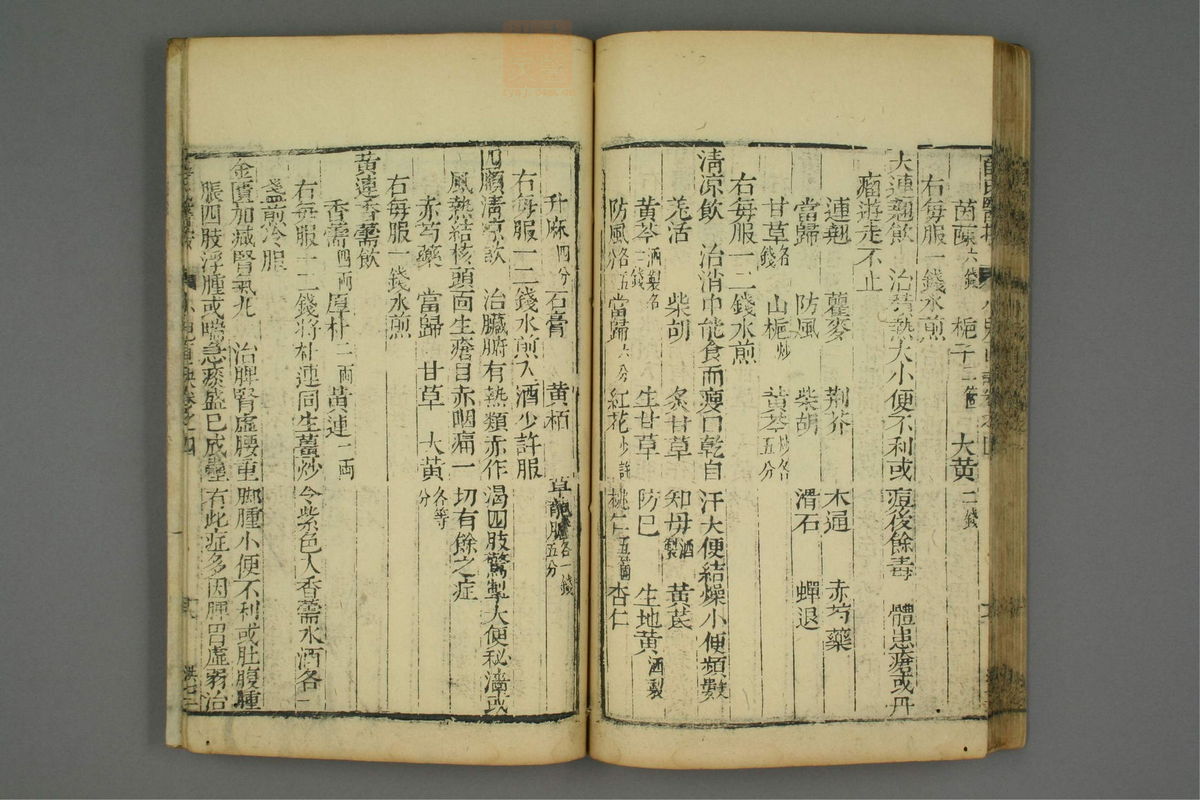 茵蔯六錢 梔子二箇 大黄二錢
右每服一錢水煎
大連翹飲 治積熱大小便不利或痘後餘毒 體患瘡或丹
瘤遊走不止
連翹 瞿麥 荆芥 木通 赤芍藥
當歸 防風 柴胡 滑石 蟬退
甘草各錢 山梔炒 黄芩炒各五分
右每服一二錢水煎
清凉飲 治消中能食而瘦口乾自汗大便結燥小便頻數
羌活 柴胡 炙甘草 知母酒製 黄芪
黄芩酒製各錢 生甘草 防已 生地黄酒製
防風各五分 當歸六分 紅花少許 桃仁五箇 杏仁
升麻四分 石膏 黄栢 草龍膽各一錢五分
右每服一二錢水煎入酒少許服
四順清凉飲 治臟腑有熱類赤作渴四肢驚掣大便秘澁或
風熱結核頭面生瘡目赤咽痛一切有餘之症
赤芍藥 當歸 甘草 大黄各等分
右每服一錢水煎
黄連香薷飲
香薷四兩 厚朴二兩 黄連二兩
右每服一二錢將朴連同生薑炒令紫色入香薷水酒各一
盞煎冷服
金匱加减腎氣丸 治脾腎虛腰重脚腫小便不利或肚腹腫
脹四肢浮腫或喘急痰盛已成蠱有此症多因脾胃虛弱治